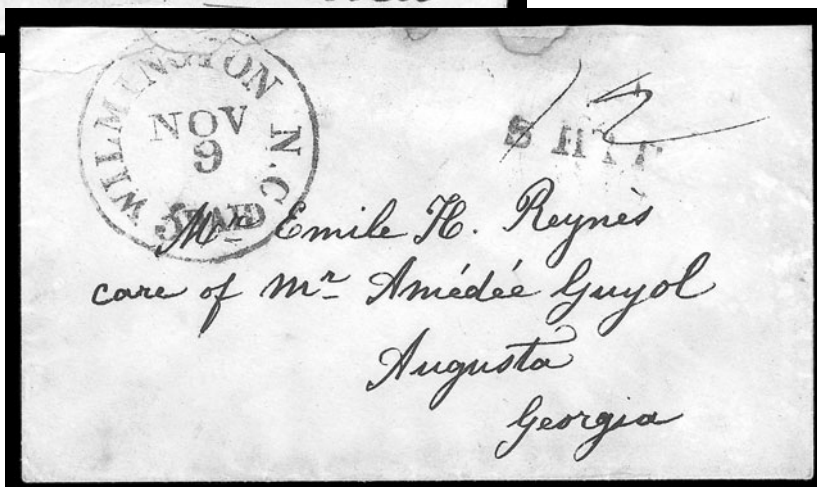 WILMINGTON N.C.
NOV
9
5 PAID
SHIP
12
Mr Emile H. Reynès
care of Mr Amédée Guyol
Augusta
Georgia